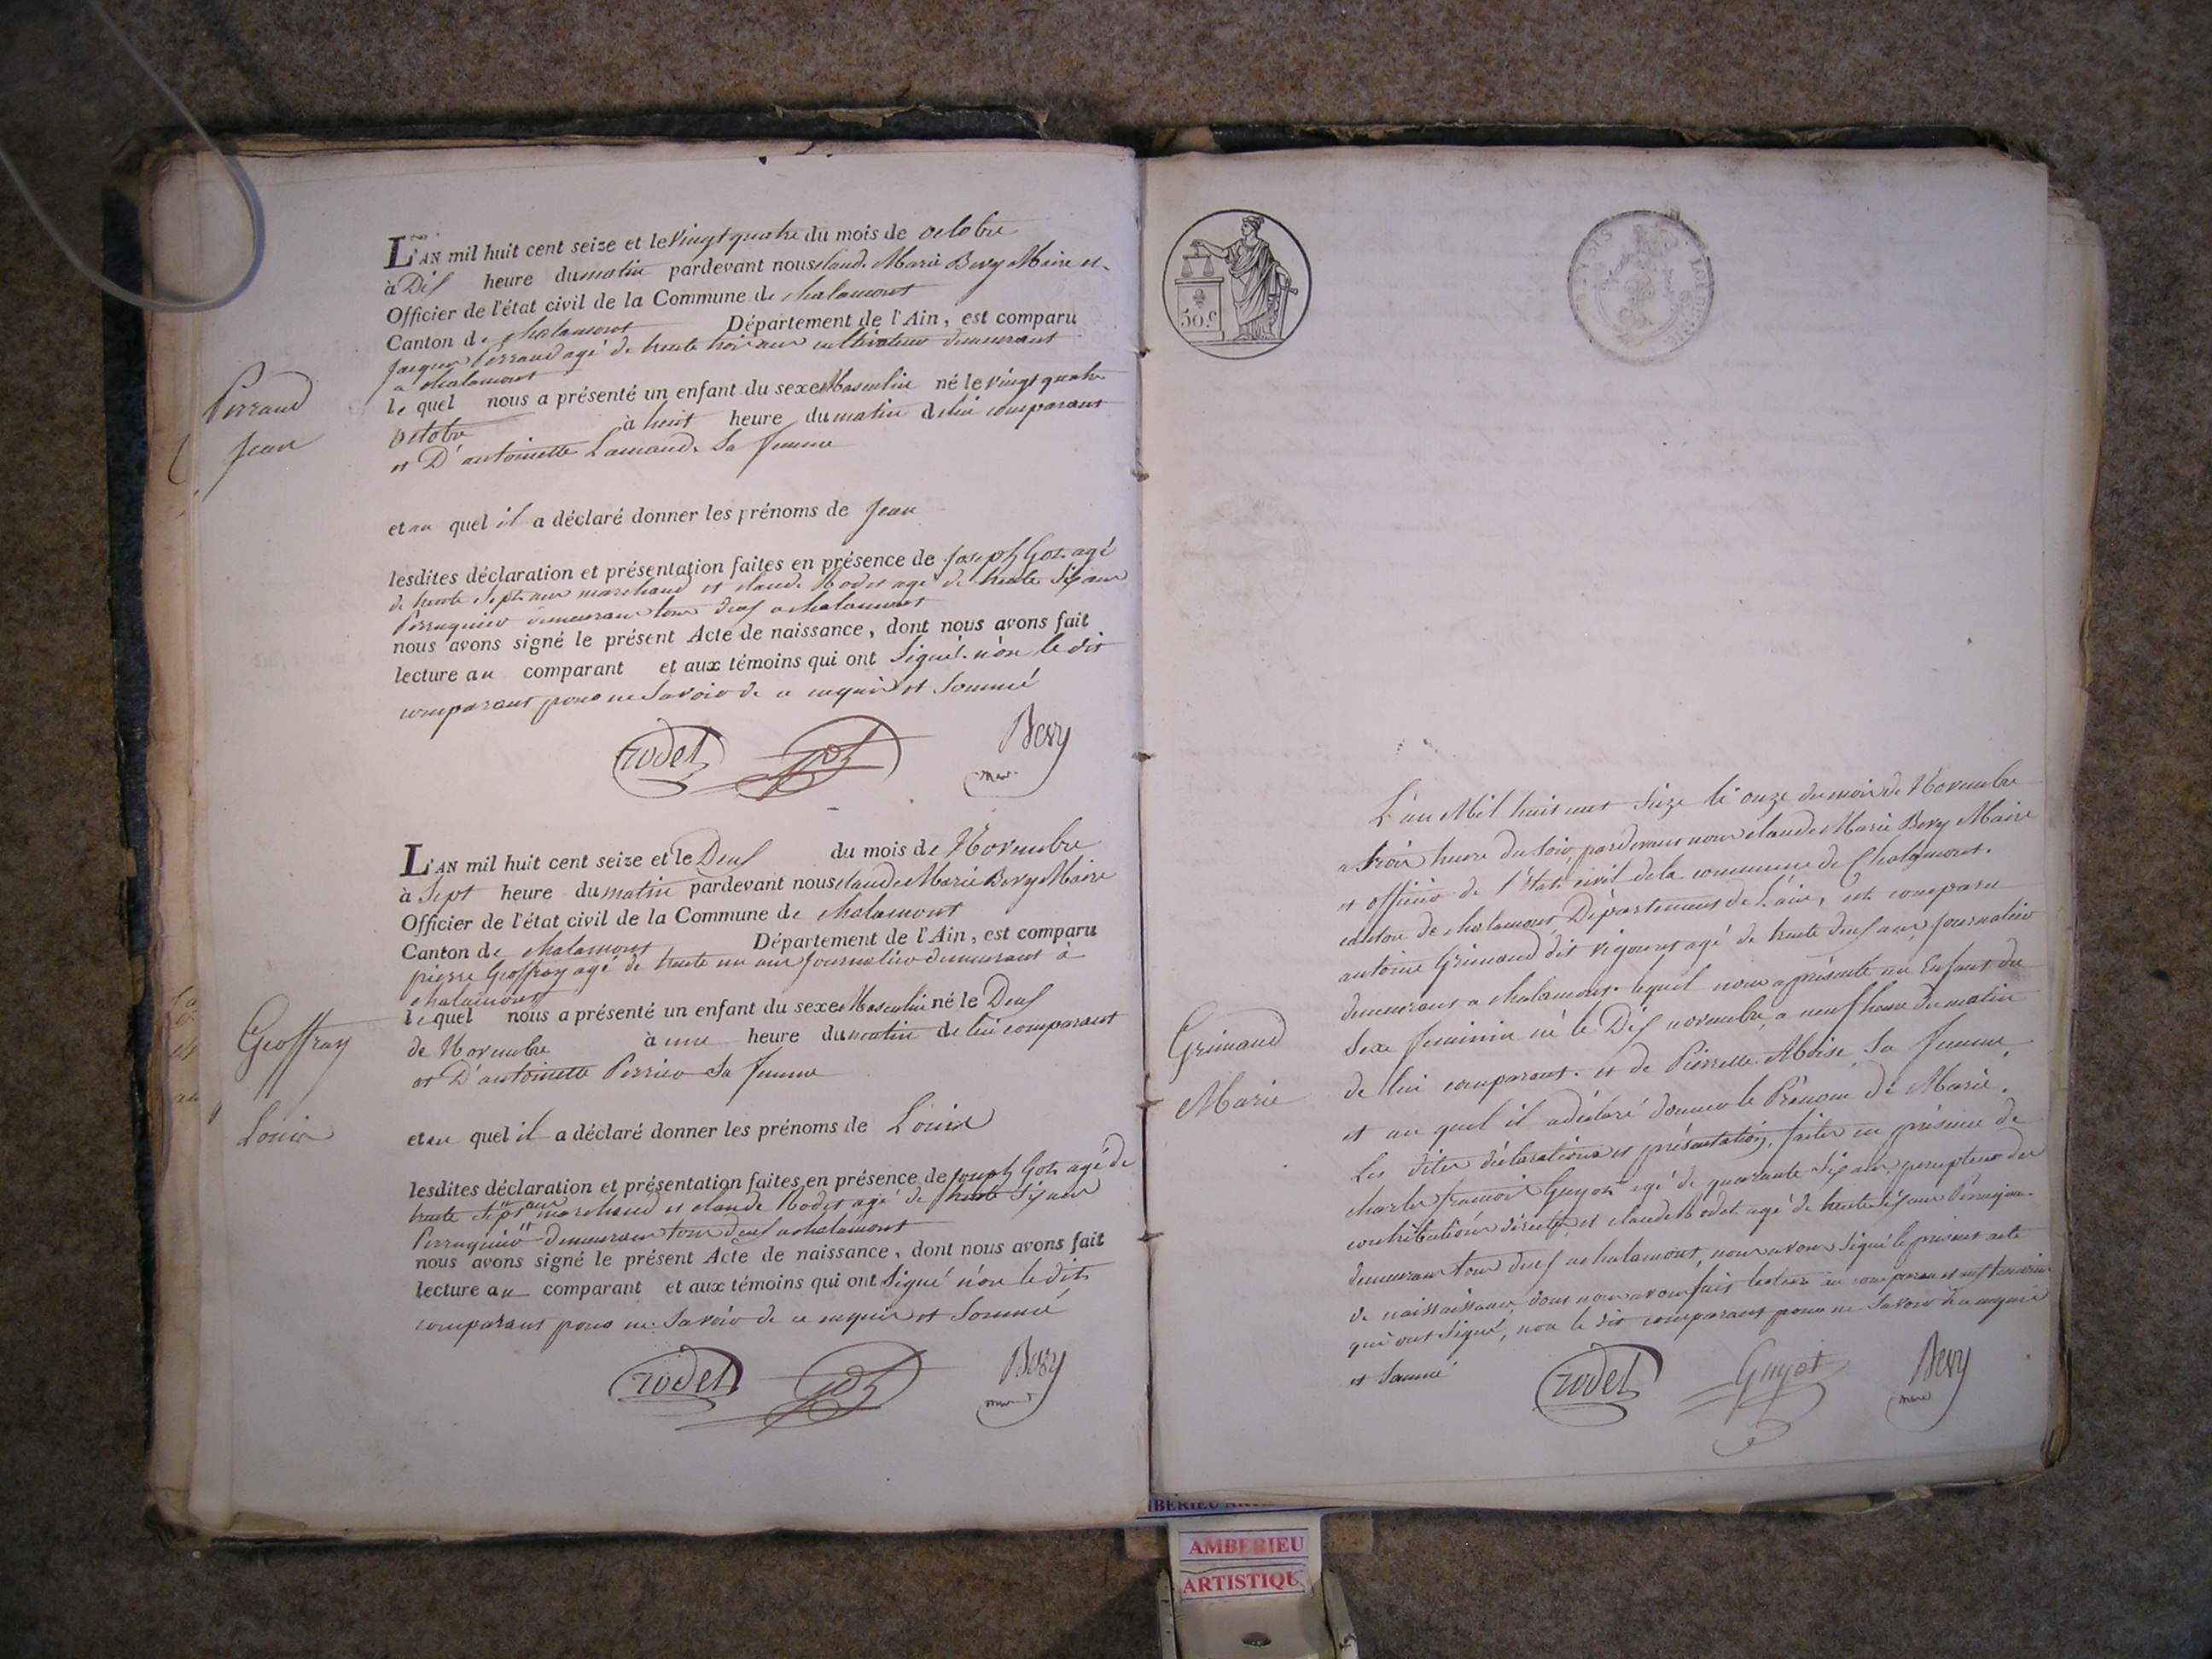 L'AN mil huit cent seize et le vingt quatre du mois de octobre
à Dix heure du matin pardevant nous claude Marie Bevy Maire et
Officier de l'état civil de la Commune de chalamont
Canton de chalamont Département de l'Ain, est comparu
jacques Perraud agé de trente trois ans cultivateur demeurant
a chalamont
le quel nous a présenté un enfant du sexe Masculin né le vingt quatre
octobre à huit heure du matin de lui comparant
et D'antoinette Lamand sa femme
Perraud
Jean
et au quel il a déclaré donner les prénoms de Jean
lesdites déclaration et présentation faites en présence de joseph Got agé
de trente sept ans marchand et claude Rodet agé de trente six ans
Perruquier demeurant tous deux a chalamont
nous avons signé le présent Acte de naissance, dont nous avons fait
lecture au comparant et aux témoins qui ont signé non le dit
comparant pour ne savoir de ce requis et sommé
rodet got Bevy
maire
L'AN mil huit cent seize et le Deux du mois de Novembre
à sept heure du matin pardevant nous claude Marie Bevy Maire
Officier de l'état civil de la Commune de chalamont
Canton de chalamont Département de l'Ain, est comparu
pierre Geoffray agé de trente un ans journalier demeurant à
chalamont
le quel nous a présenté un enfant du sexe Masculin né le Deux
de Novembre à une heure du matin de lui comparant
et D'antoinette Perrier sa femme
Geoffray
Louis
et au quel il a déclaré donner les prénoms de Louis
lesdites déclaration et présentation faites en présence de joseph Got agé de
trente sept ans marchand et claude Rodet agé de trente six ans
Perruquier demeurant tous deux a chalamont
nous avons signé le présent Acte de naissance, dont nous avons fait
lecture au comparant et aux témoins qui ont signé non le dit
comparant pour ne savoir de ce requis et sommé
rodet got Bevy
maire
50.c
L'an Mil huit cent seize le onze du mois de Novembre
a trois heure du soir, pardevant nous claude Marie Bevy Maire
et officier de l'état civil de la commune de Chalamont.
canton de chalamont Département de L'ain, est comparu
antoine Grimaud dit vigouret agé de trente deux ans journalier
demeurant a chalamont lequel nous a présenté un Enfant du
sexe feminin né le Dix novembre, a neuf heure du matin
de lui comparant. et de Pierrette Moise sa femme,
et au quel il a déclaré donner le Prénom de Marie.
Grimaud
Marie
Les dites déclarations et présentation, faites en présence de
charles francois Guyot agé de quarante six ans, percepteur des
contributions directes, et claude Rodet agé de trente six ans Perruquier
demeurant tous deux a chalamont, nous avons signé le présent acte
de naissance, dont nous avons fait lecture au comparant et aux temoins
qui ont signé, non le dit comparant pour ne savoir de ce requis
et sommé
rodet Guyot Bevy
maire
AMBERIEU
ARTISTIQU